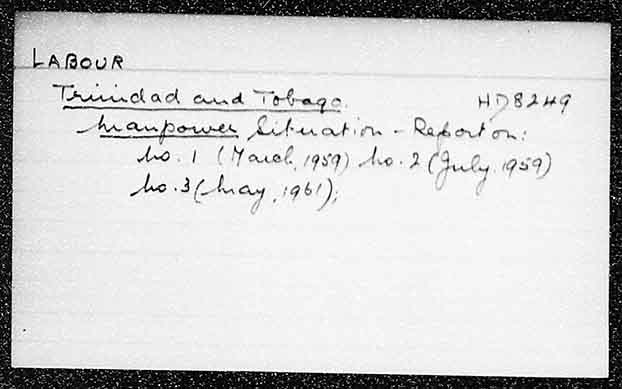 LABOUR
Trinidad and Tobago. HD8249
Manpower Situation - Report on:
No. 1 (March, 1959) No. 2 (July, 1959)
No. 3 (May, 1961);